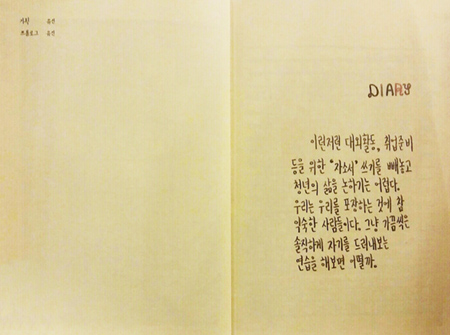 사진 유진
프롤로그 유진
DIARY
이런저런 대외활동, 취업준비
등을 위한 '자소서' 쓰기를 빼놓고
청년의 삶을 논하기는 어렵다.
우리는 우리를 포장하는 것에 참
익숙한 사람들이다. 그냥 가끔씩은
솔직하게 자기를 드러내보는
연습을 해보면 어떨까.